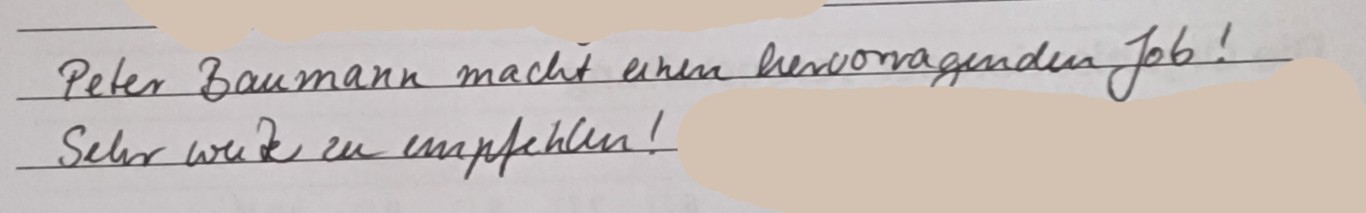 Peter Baumann macht einen hervorragenden Job!
Sehr zu empfehlen!